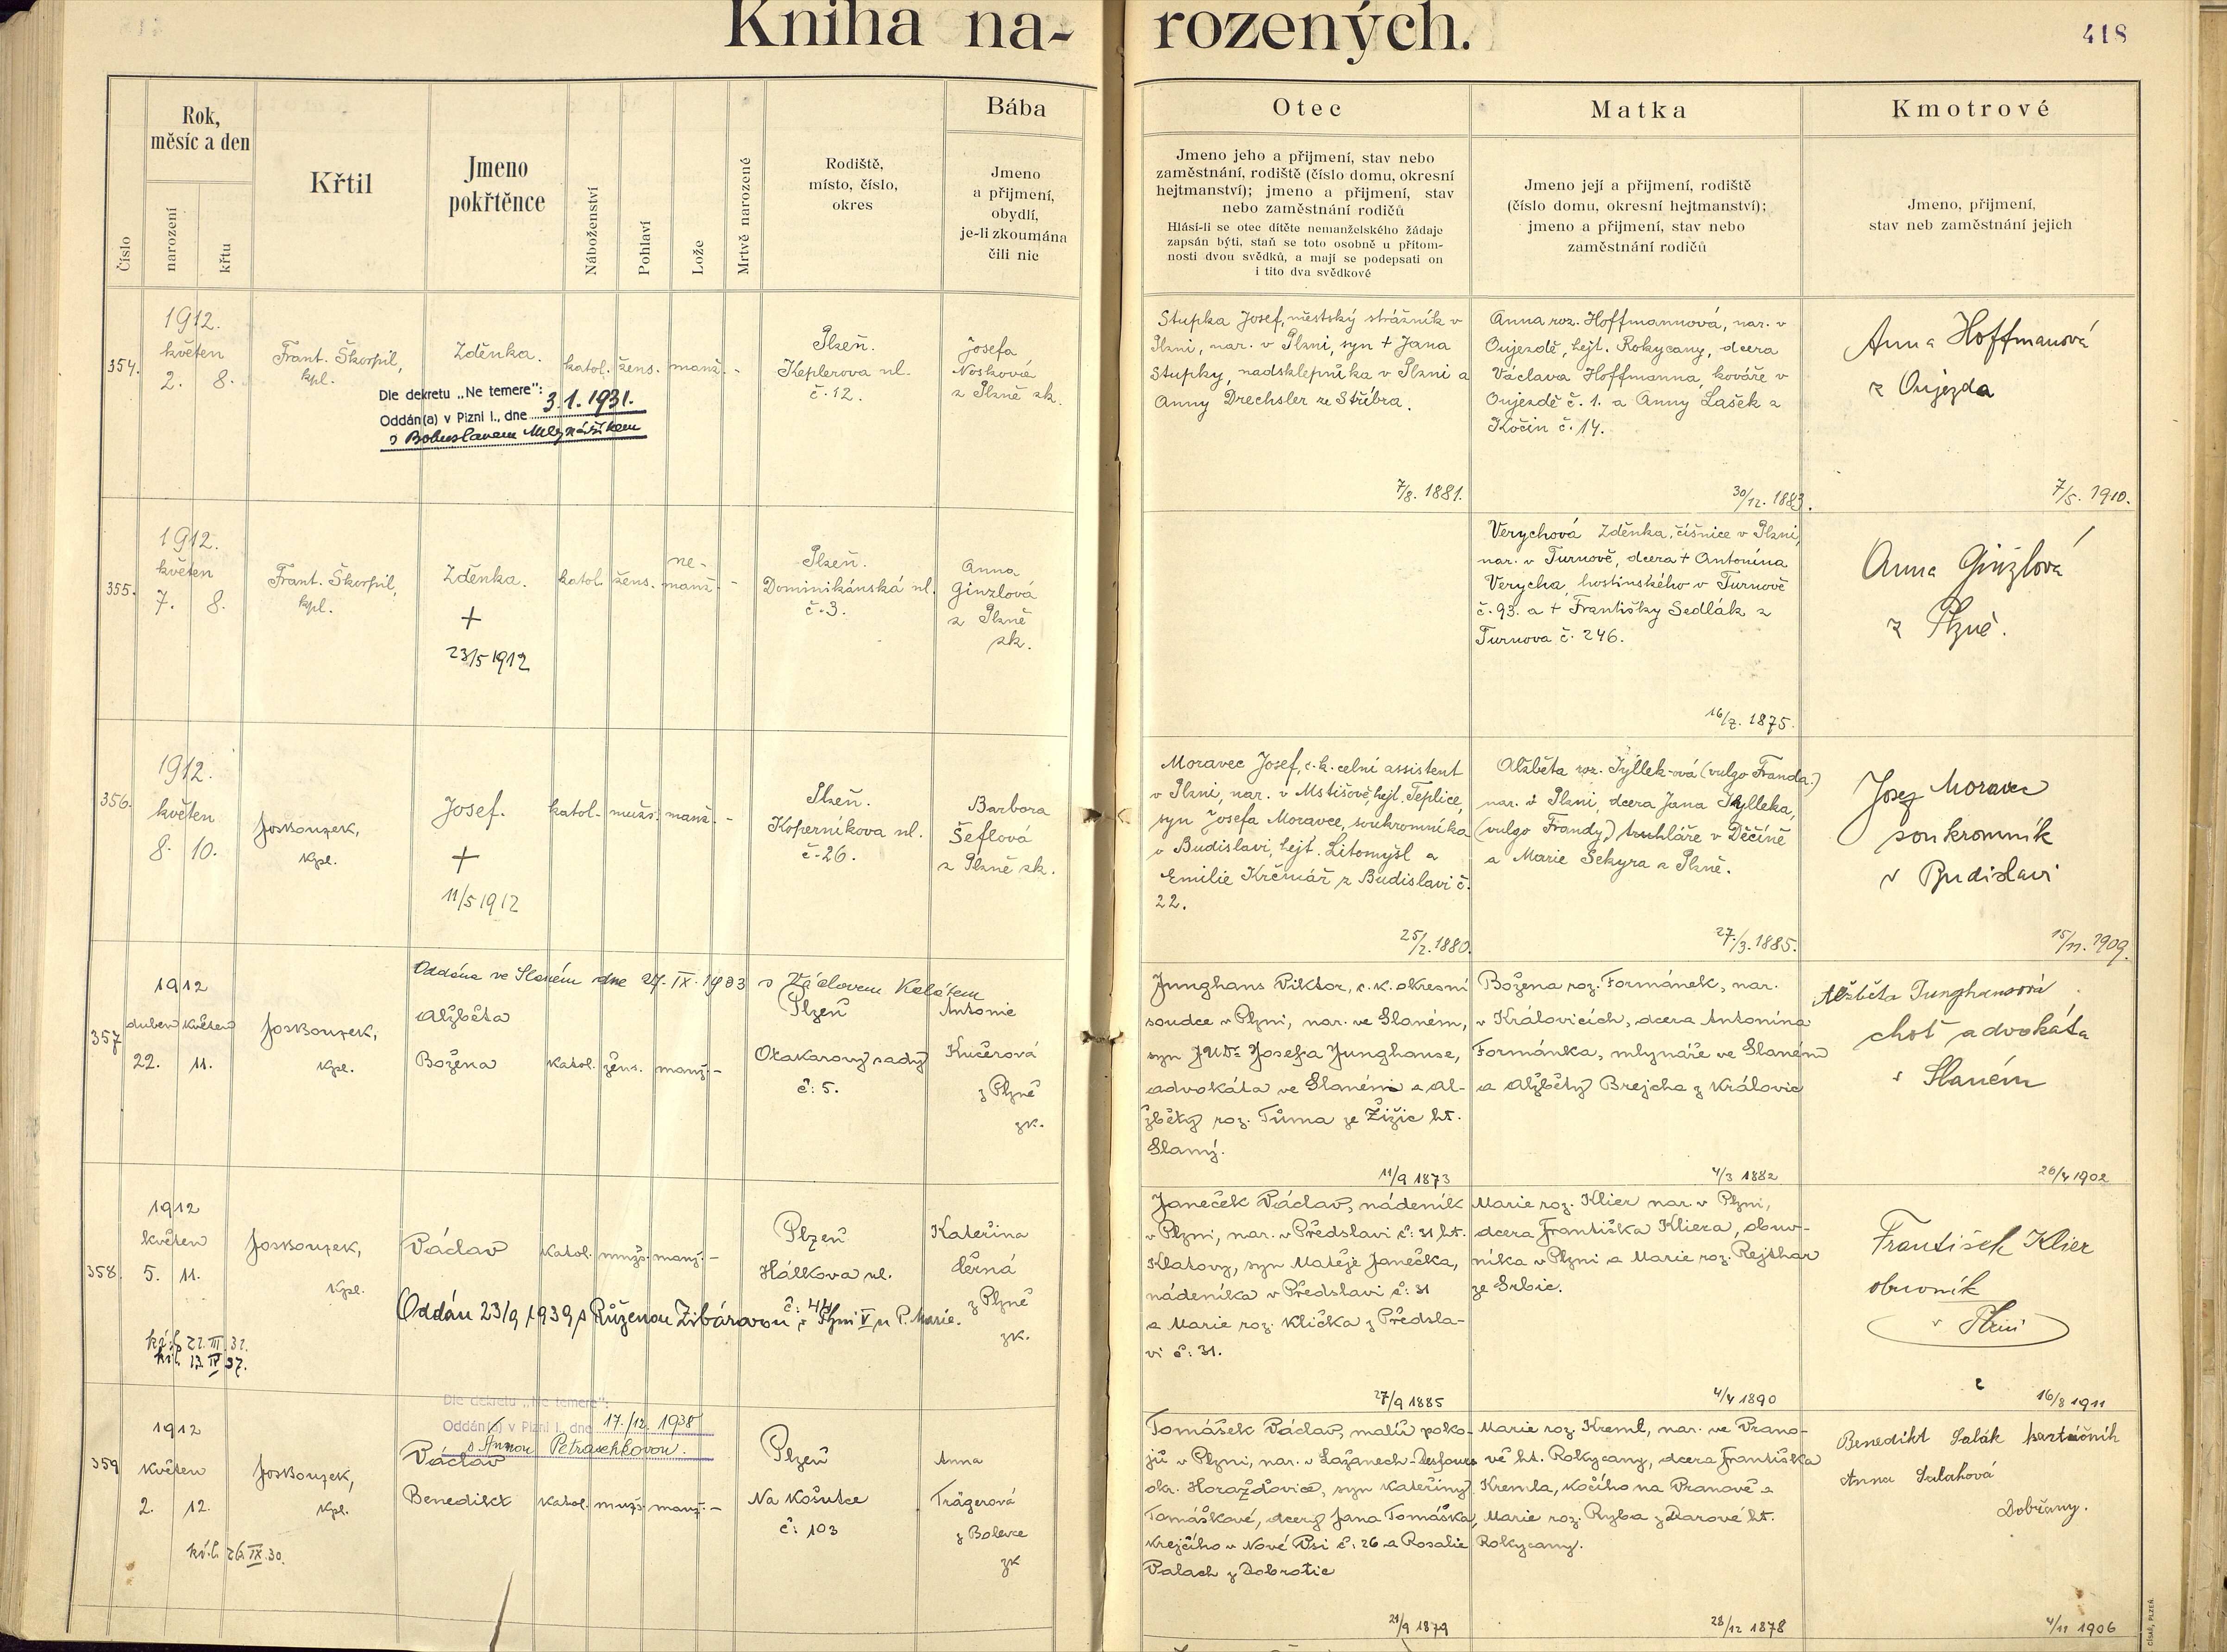 Kniha na-
rozených.
418
Číslo
Rok,
měsíc a den
narození
křtu
Křtil
Jmeno
pokřtěnce
Náboženství
Pohlaví
Lože
Mrtvě narozené
Rodiště,
místo, číslo,
okres
Bába
Jmeno
a přijmení,
obydlí,
je-li zkoumána
čili nic
Otec
Jmeno jeho a přijmení, stav nebo
zaměstnání, rodiště (číslo domu, okresní
hejtmanství); jmeno a přijmení, stav
nebo zaměstnání rodičů
Hlásí-li se otec dítěte nemanželského žádaje
zapsán býti, staň se toto osobně u přítom-
nosti dvou svědků, a mají se podepsati on
i tito dva svědkové
Matka
Jmeno její a přijmení, rodiště
(číslo domu, okresní hejtmanství);
jmeno a přijmení, stav nebo
zaměstnání rodičů
Kmotrové
Jmeno, přijmení,
stav neb zaměstnání jejich
354.
1912.
květen
2. 8.
Frant. Škorpil,
kpl.
Zděnka.
Dle dekretu „Ne temere":
Oddán(a) v Plzni I., dne 3.1.1931.
s Bohuslavem Mlynaříkem
katol. žens. manž. -
Plzeň.
Keplerova ul.
č. 12.
Josefa
Nosková
z Plzně zk.
Stupka Josef, městský strážník v
Plzni, nar. v Plzni, syn + Jana
Stupky, nadsklepníka v Plzni a
Anny Drechsler ze Stříbra.
7/8. 1881.
Anna roz. Hoffmannová, nar. v
Oujezdě, hejt. Rokycany, dcera
Václava Hoffmanna, kováře v
Oujezdě č. 1. a Anny Lašek z
Kočin č. 14.
30/12. 1883.
Anna Hoffmanová
z Oujezda
7/5. 1910.
355.
1912.
květen
7. 8.
Frant. Škorpil,
kpl.
Zděnka.
+
23/5 1912
katol. žens. ne-
manž. -
Plzeň.
Dominikánská ul.
č. 3.
Anna
Ginzlová
z Plzně
zk.
Verychová Zděnka, číšnice v Plzni,
nar. v Turnově, dcera + Antonína
Verycha, hostinského v Turnově
č. 93. a + Františky Sedlák z
Turnova č. 246.
16/7. 1875.
Anna Ginzlová
z Plzně.
356.
1912.
květen
8. 10.
Jos. Bouzek,
kpl.
Josef.
+
11/5 1912
katol. mužs. manž. -
Plzeň.
Koperníkova ul.
č. 26.
Barbora
Šeflová
z Plzně zk.
Moravec Josef, c.k. celní assistent
v Plzni, nar. v Mstišově, hejt. Teplice,
syn Josefa Moravce, soukromníka
v Budislavi, hejt. Litomyšl a
Emilie Krčmář z Budislavi č.
22.
25/2. 1880.
Alžběta roz. Tyllek-ová (vulgo Franda.)
nar. v Plzni, dcera Jana Tylleka,
(vulgo Frandy) truhláře v Děčíně
a Marie Sekyra z Plzně.
27./3. 1885.
Josef Moravec
soukromník
v Budislavi
15/11. 1909.
357
1912
duben květen
22. 11.
Jos. Bouzek,
kpl.
Oddána ve Slaném dne 27. IX. 1933 s Václavem Kolátem
Alžběta
Božena
katol. žens. manž. -
Plzeň
Otakarovy sady
č: 5.
Antonie
Kučerová
z Plzně
zk.
Junghans Viktor, c. k. okresní
soudce v Plzni, nar. ve Slaném,
syn JUDr Josefa Junghanse,
advokáta ve Slaném a Al-
žběty roz. Tůma ze Žižic ht.
Slaný.
11/9 1873
Božena roz. Formánek, nar.
v Královicích, dcera Antonína
Formánka, mlynáře ve Slaném
a Alžběty Brejcha z Královic
4/3 1882
Alžběta Junghansová
choť advokáta
v Slaném
26/4 1902
358.
1912
květen
5. 11.
kř. l. 22. III. 32.
kř. l. 13. IV 37.
Jos. Bouzek,
kpl.
Václav
katol. mužs. manž. -
Oddán 23/9 1939 s Růženou Zibárovou v Plzni V u P. Marie.
Plzeň
Hálkova ul.
č: 44
Kateřina
Černá
z Plzně
zk.
Janeček Václav, nádeník
v Plzni, nar. v Předslavi č: 31 ht.
Klatovy, syn Matěje Janečka,
nádeníka v Předslavi č: 31
a Marie roz. Klička z Předsla-
vi č: 31.
27/9 1885
Marie roz. Klier nar. v Plzni,
dcera Františka Kliera, obuv-
níka v Plzni a Marie roz. Rejthar
ze Srbic.
4/4 1890
František Klier
obuvník
v Plzni
16/8 1911
359
1912
květen
2. 12.
kř. l. 26. IX. 30.
Jos. Bouzek,
kpl.
Dle dekretu „Ne temere":
Oddán(a) v Plzni I., dne 17./12. 1938
s Annou Petraschkovou.
Václav
Benedikt
katol. mužs. manž. -
Plzeň
Na Košutce
č: 103
Anna
Trägerová
z Bolevce
zk
Tomášek Václav, malíř poko-
jů v Plzni, nar. v Lažanech-Desfours
okr. Horažďovice, syn Kateřiny
Tomáškové, dcery Jana Tomáška,
krejčího v Nové Vsi č: 26 a Rosalie
Valach z Dobrotic
21/9 1879
Marie roz. Kreml, nar. ve Vrano-
vě ht. Rokycany, dcera Františka
Kremla, kočího na Vranově a
Marie roz. Ryba z Darové ht.
Rokycany.
28/12 1878
Benedikt Salák kartáčník
Anna Salaková
Dobřany.
4/11 1906
CÍSAŘ, PLZEŇ.